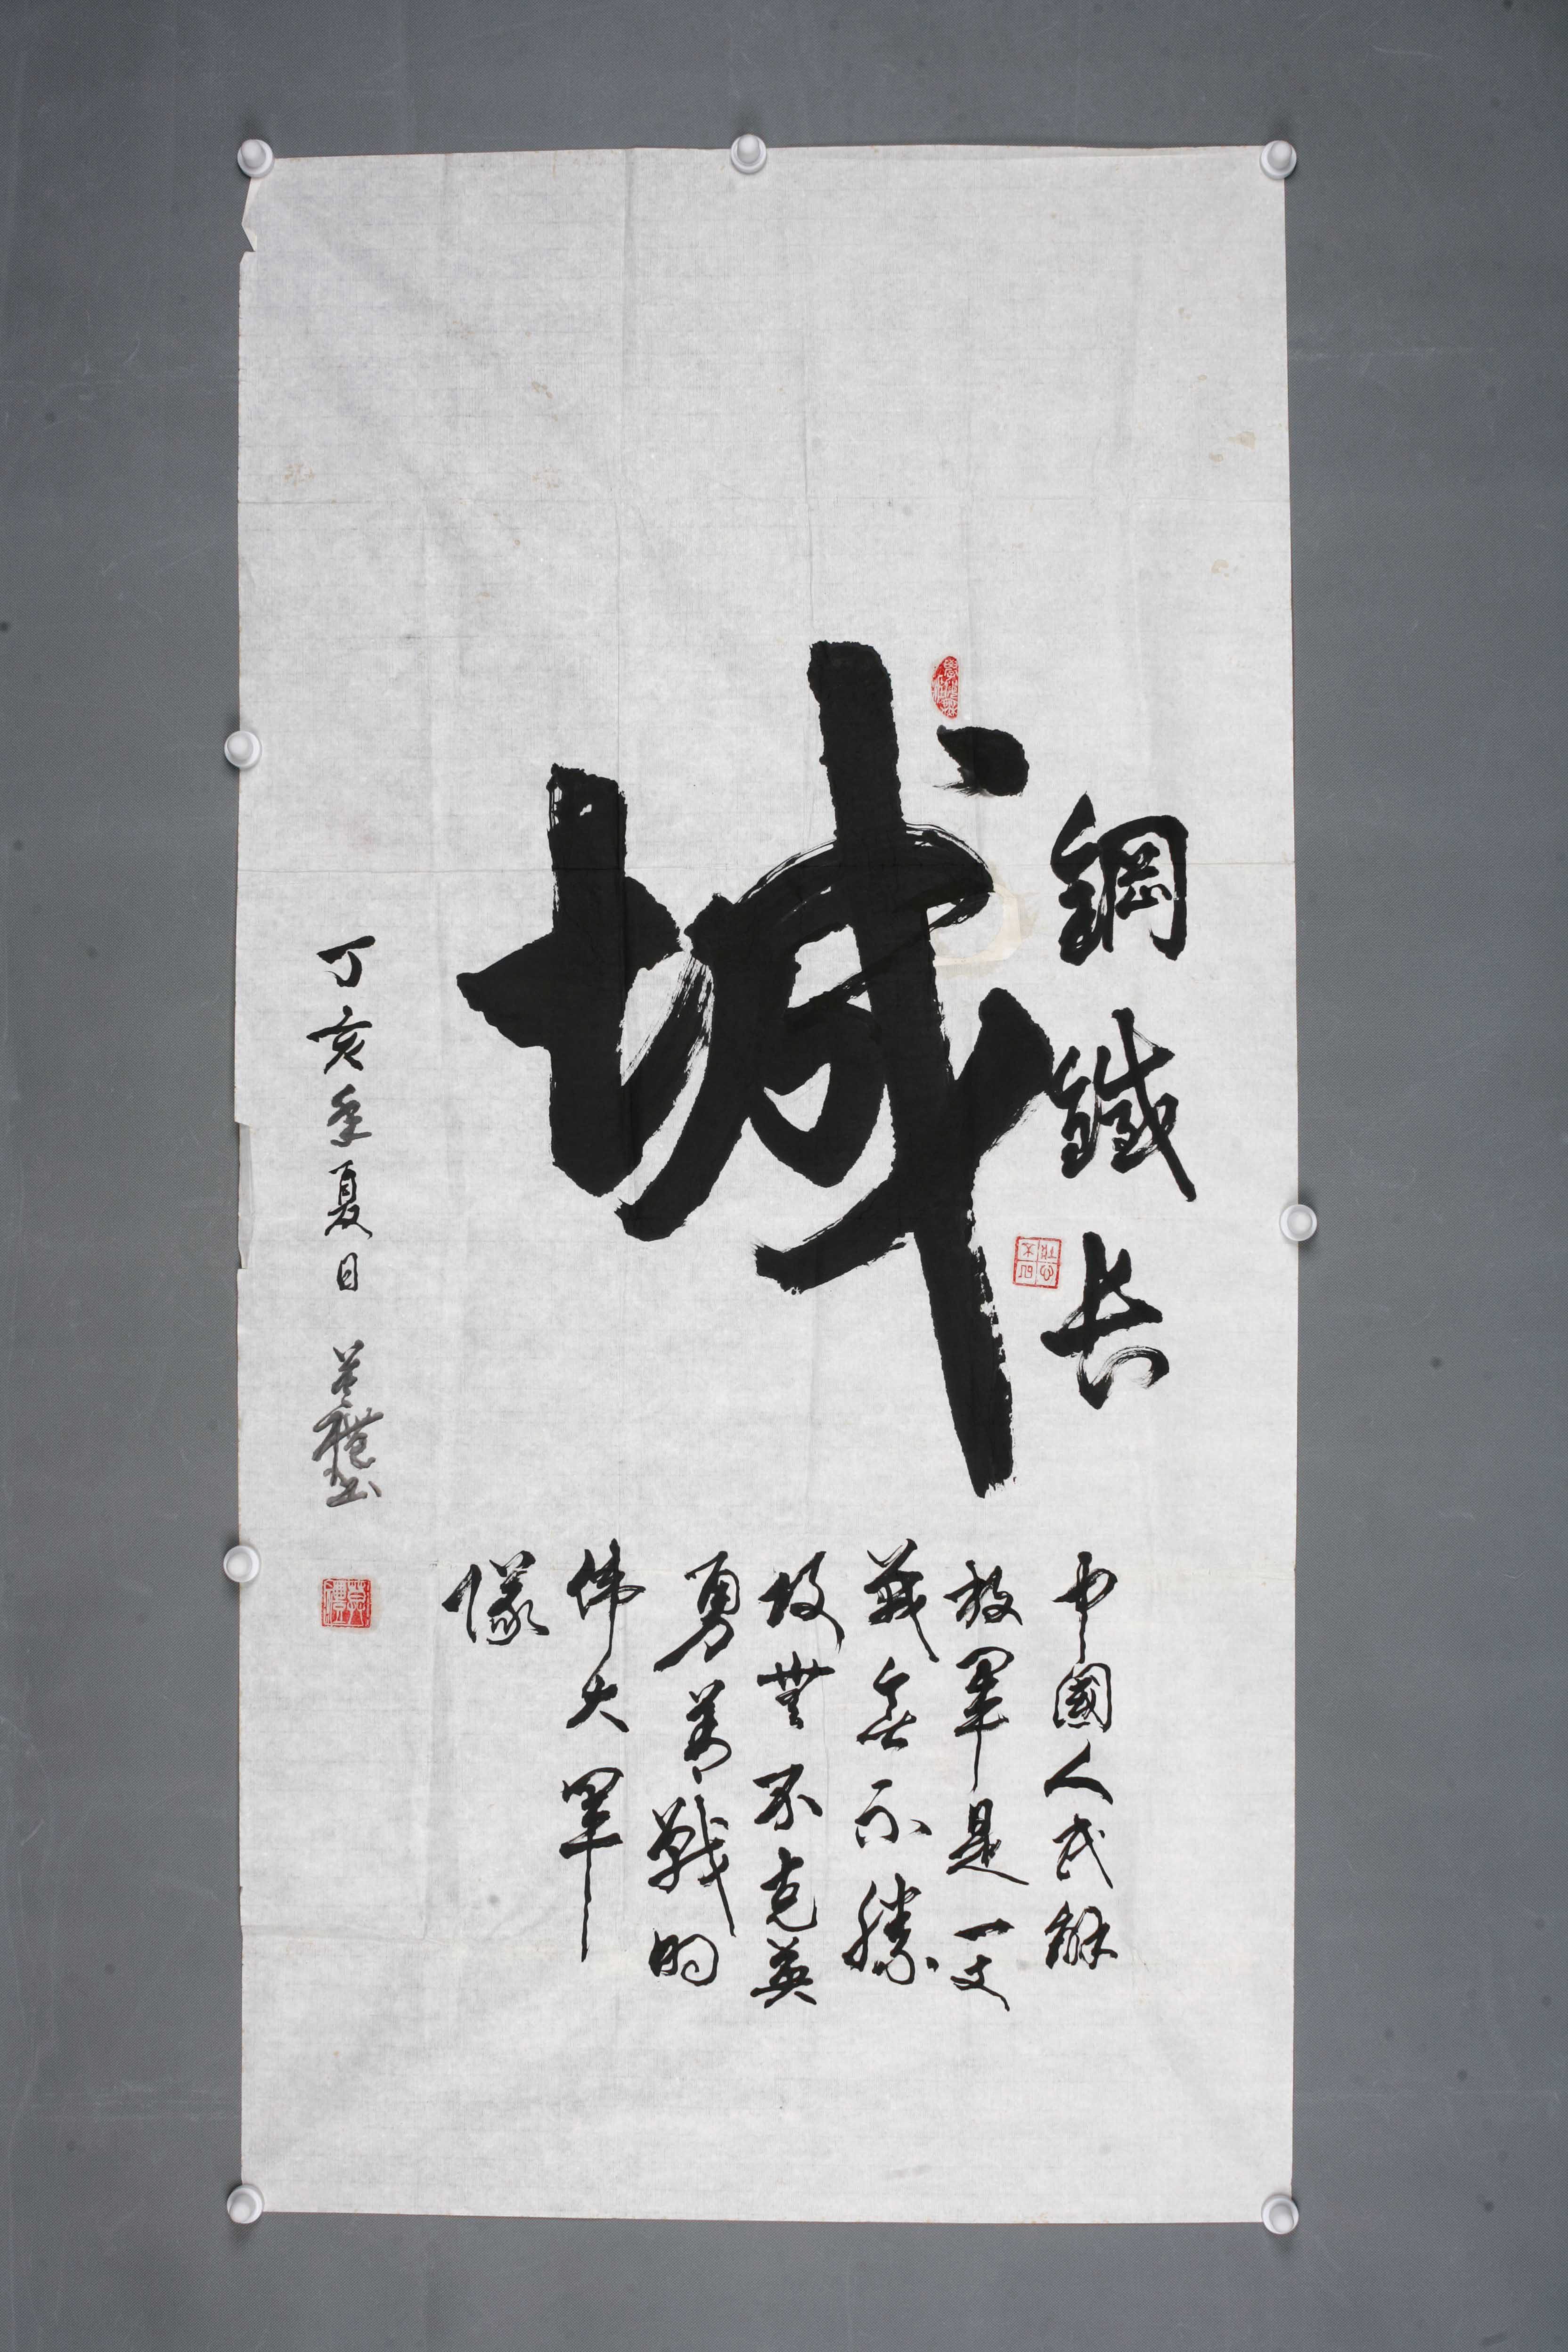 鋼鐵長
城
中國人民解
放軍是一支
戰無不勝
攻無不克英
勇善戰的
伟大軍
隊
丁亥年夏日 书